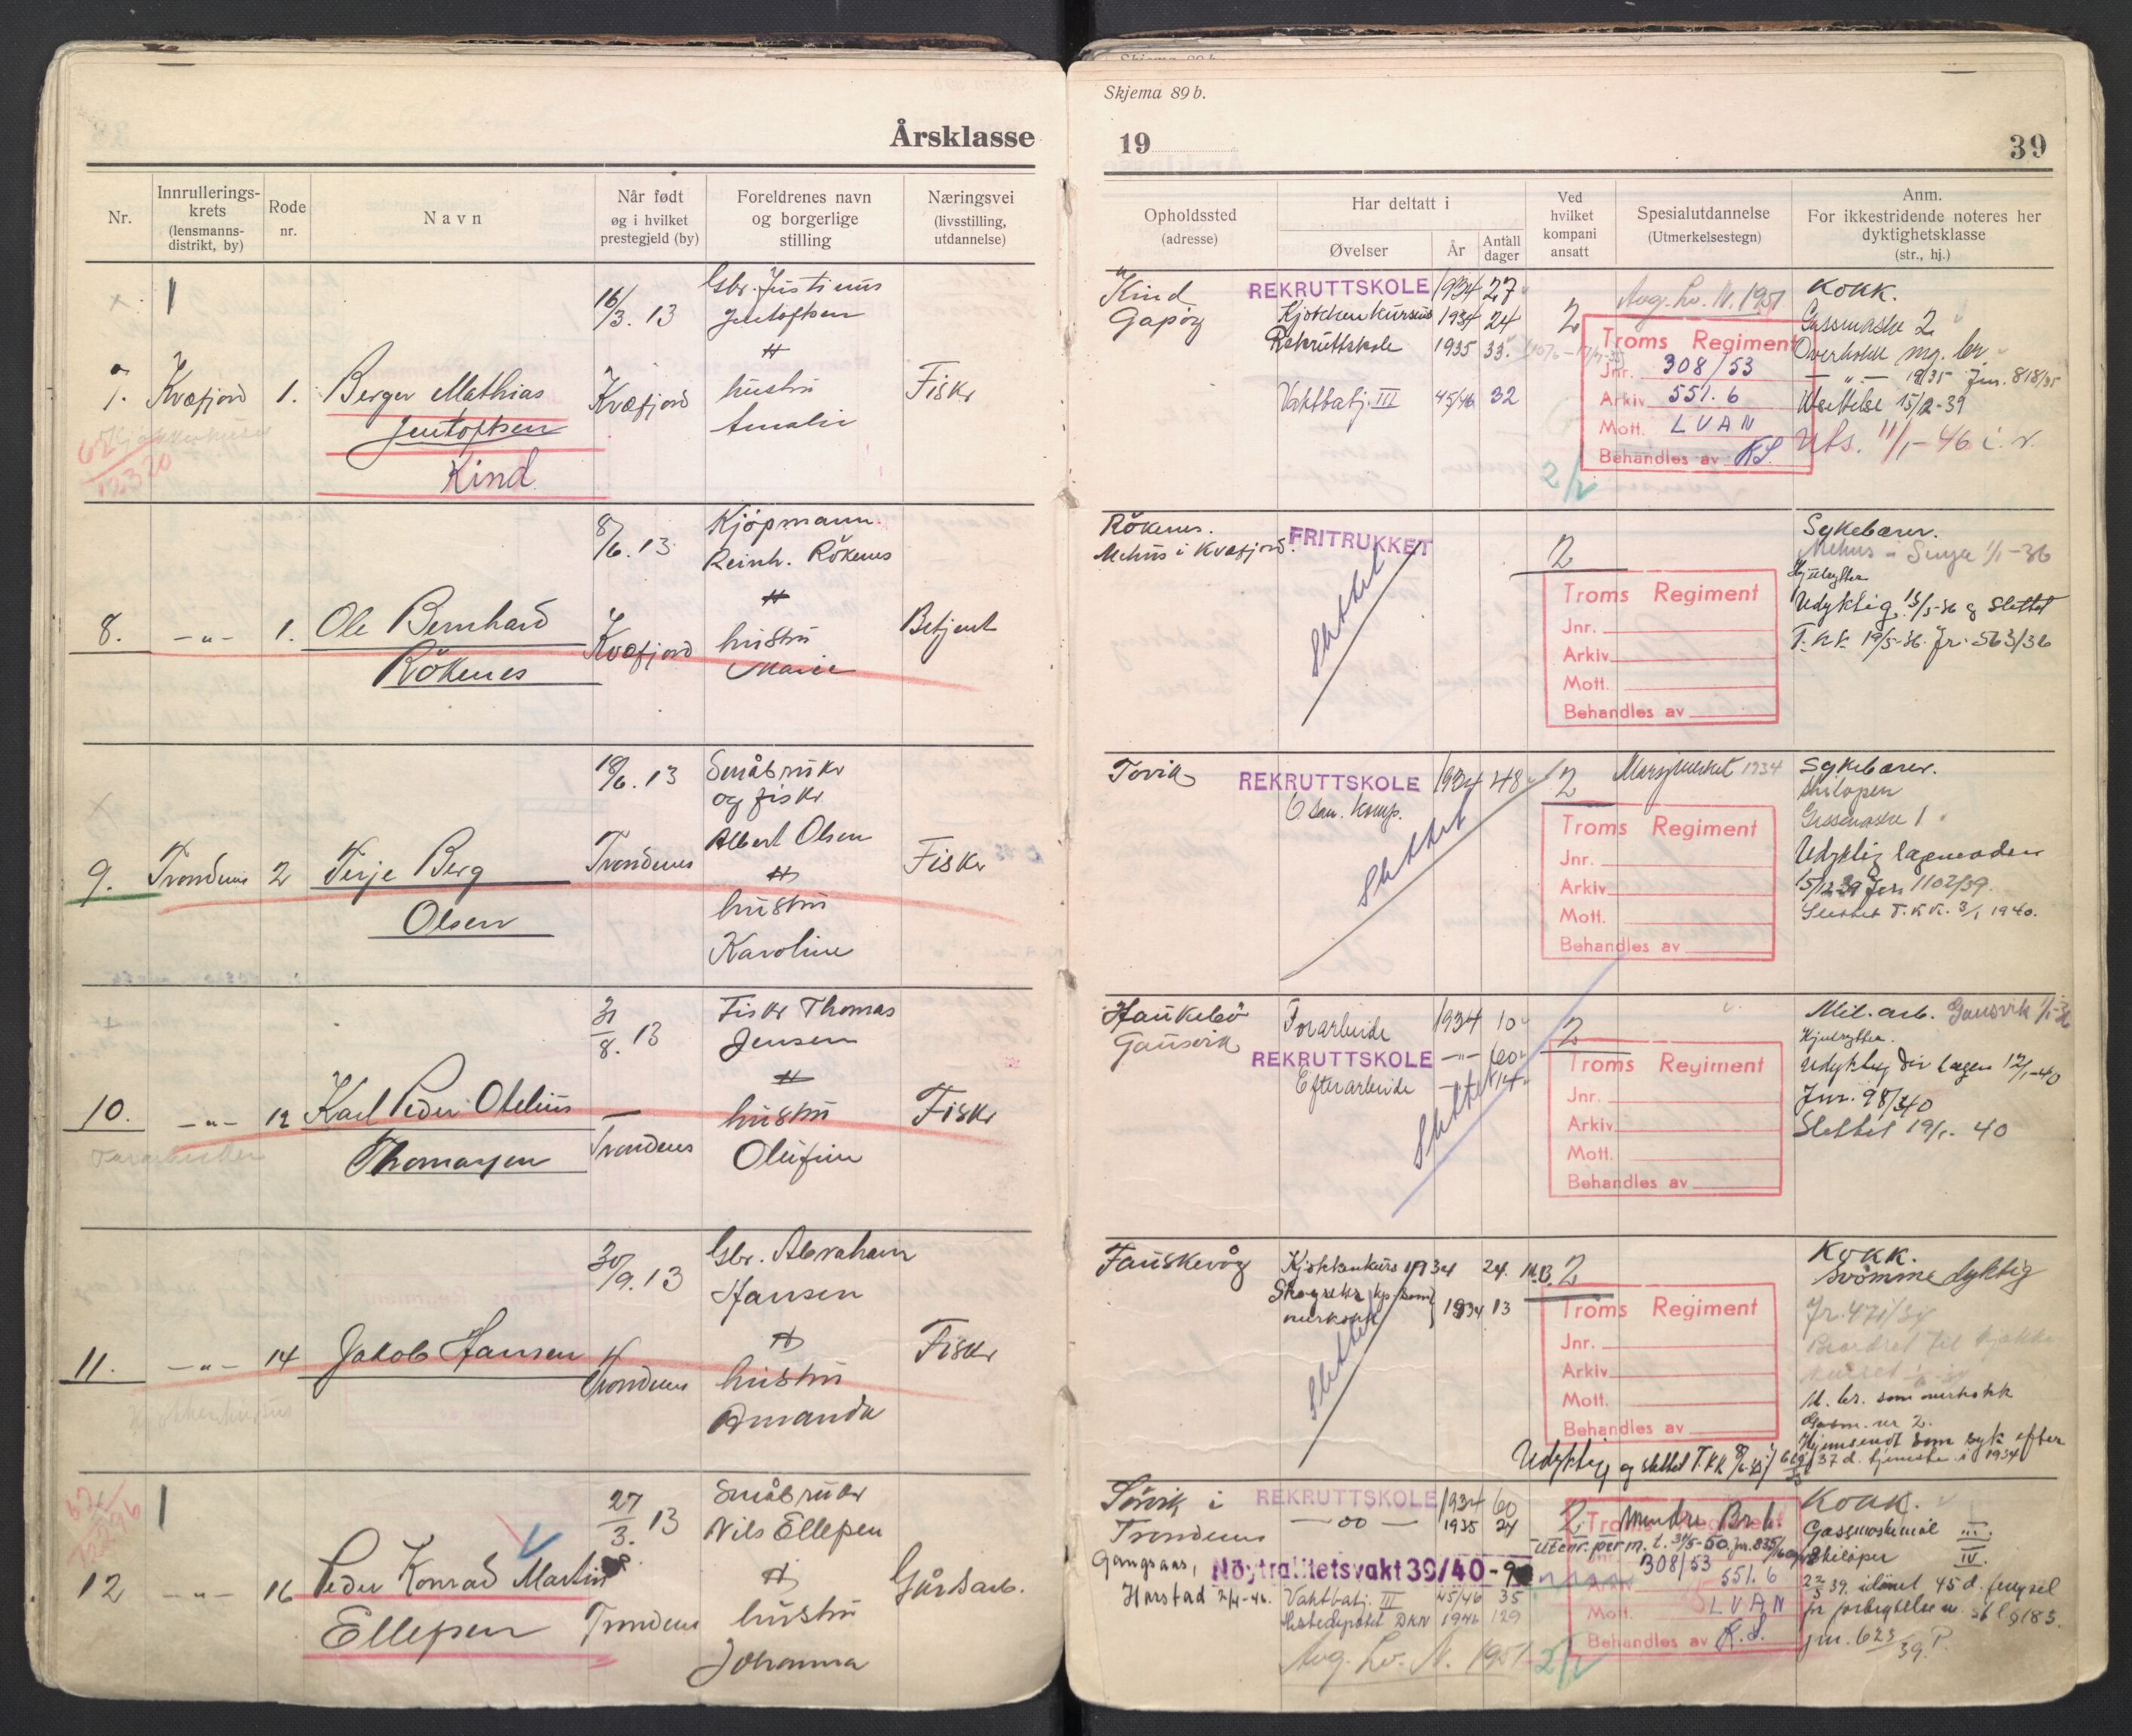 Årsklasse
Nr.
Innrullerings-
krets
(lensmanns-
distrikt, by)
Rode
nr.
Navn
Når født
og i hvilket
prestegjeld (by)
Foreldrenes navn
og borgerlige
stilling
Næringsvei
(livsstilling,
utdannelse)
1
16/3. 13
Gbr. Justinus
Jentoftsen
H
7. Kvæfjord 1. Berger Mathias Kvæfjord hustru Fisker
Jentoftsen Amalie
Kind
62
12320
8/6. 13
Kjøpmann
Reinh. Rökenes
H
8. -"- 1. Ole Bernhard Kvæfjord hustru Betjent
Rökenes Marie
18/6. 13
Småbruker
og fisker
Albert Olsen
H
9. Trondenes 2 Terje Berg Trondenes Fisker
Olsen hustru
Karoline
31/8. 13
Fisker Thomas
Jensen
H
10. -"- 12 Karl Peder Otelius hustru Fisker
Thomassen Trondenes Olufine
30/9. 13
Gbr. Abraham
Hansen
H
11. -"- 14 Jakob Hansen Trondenes hustru Fisker
Amanda
1
27/3. 13
Småbruker
Nils Ellefsen
H
12 -"- 16 Peder Konrad Martin Gårdsarb.
Ellefsen Trondenes hustru
Johanna
Skjema 89 b.
19
39
Opholdssted
(adresse)
Har deltatt i
Øvelser
År
Antall
dager
Ved
hvilket
kompani
ansatt
Spesialutdannelse
(Utmerkelsestegn)
Anm.
For ikkestridende noteres her
dyktighetsklasse
(str., hj.)
Kind REKRUTTSKOLE 1934 27 Avg. Lv. N. 1951 Kokk.
Gapøy Kjøkkenkursus 1934 24 2 Gassmaske 2
Rekruttskole 1935 33 Overkokk
1935 Jnr. 818/35
Vaktbatj. III 45/46 32
Utsettelse 15/2-39
Uts. 11/1-46 i. v.
Troms Regiment
Jnr. 308/53
Arkiv 551.6
Mott. LVAN
Behandles av K.S.
2/2
Rökenes. FRITRUKKET 2 Sykebærer.
Mehus i Kvæfjord. 1/1-36
Slettet
Udyktig 13/5-36 og slettet
T.K.K. 19/5-36. Jr. 563/36
Troms Regiment
Jnr.
Arkiv
Mott.
Behandles av
Tovik REKRUTTSKOLE 1934 48 2 Marsjmerket 1934 Sykebærer.
6 san. komp. Skiløper
Gassmaske 1
Slettet
Udyktig
15/12 39 Jnr. 1102/39.
Slettet T.K.K. 3/1 1940.
Troms Regiment
Jnr.
Arkiv
Mott.
Behandles av
Haukebö Forarbeide 1934 10 2 Mil. arb. Gausvik
Gausvik REKRUTTSKOLE -"- 60 Hjulrytter.
Efterarbeide 14
Slettet
Udyktig 12/1-40
Jnr. 98/40
Slettet 19/1- 40
Troms Regiment
Jnr.
Arkiv
Mott.
Behandles av
Fauskevåg Kjøkkenkurs 1934 24. 2 Kokk.
Svømmedyktig
1934 13
Slettet
Jr. 471/34
Beordret til kjøkken
kurset
M. br. som
Gasm. nr 2.
Hjemsendt som syk efter
37 d. tjeneste i 1934
Troms Regiment
Jnr.
Arkiv
Mott.
Behandles av
Udyktig og slettet T.K.K.
Sörvik i REKRUTTSKOLE 1934 60 2 Mindre Brb. Kokk.
Trondenes - " - 1935 24 Gassmaskemål III.
Skiløper IV.
Gangsaas, Nöytralitetsvakt 39/40 - 9
Harstad 2/4-46. Vaktbatj. III 45/46 35
Hestedepotet DKN 1946 129
Avg. Lv. N. 1951 2/2
Troms Regiment
308/53
551.6
Mott. LVAN
Behandles av K.S.
45 d. fengsel
jnr. 623/39.